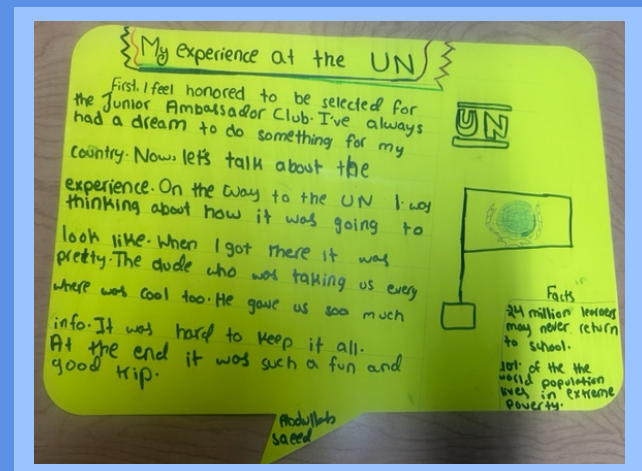 My experience at the UN
First, I feel honored to be selected for
the Junior Ambassador Club. I've always
had a dream to do something for my
country. Now, let's talk about the
experience. On the way to the UN I was
thinking about how it was going to
look like. When I got there it was
pretty. The dude who was taking us every
where was cool too. He gave us soo much
info. It was hard to keep it all.
At the end it was such a fun and
good trip.
UN
Facts
24 million learners
may never return
to school.
10% of the the
world population
lives in extreme
poverty.
Abdullah
saeed